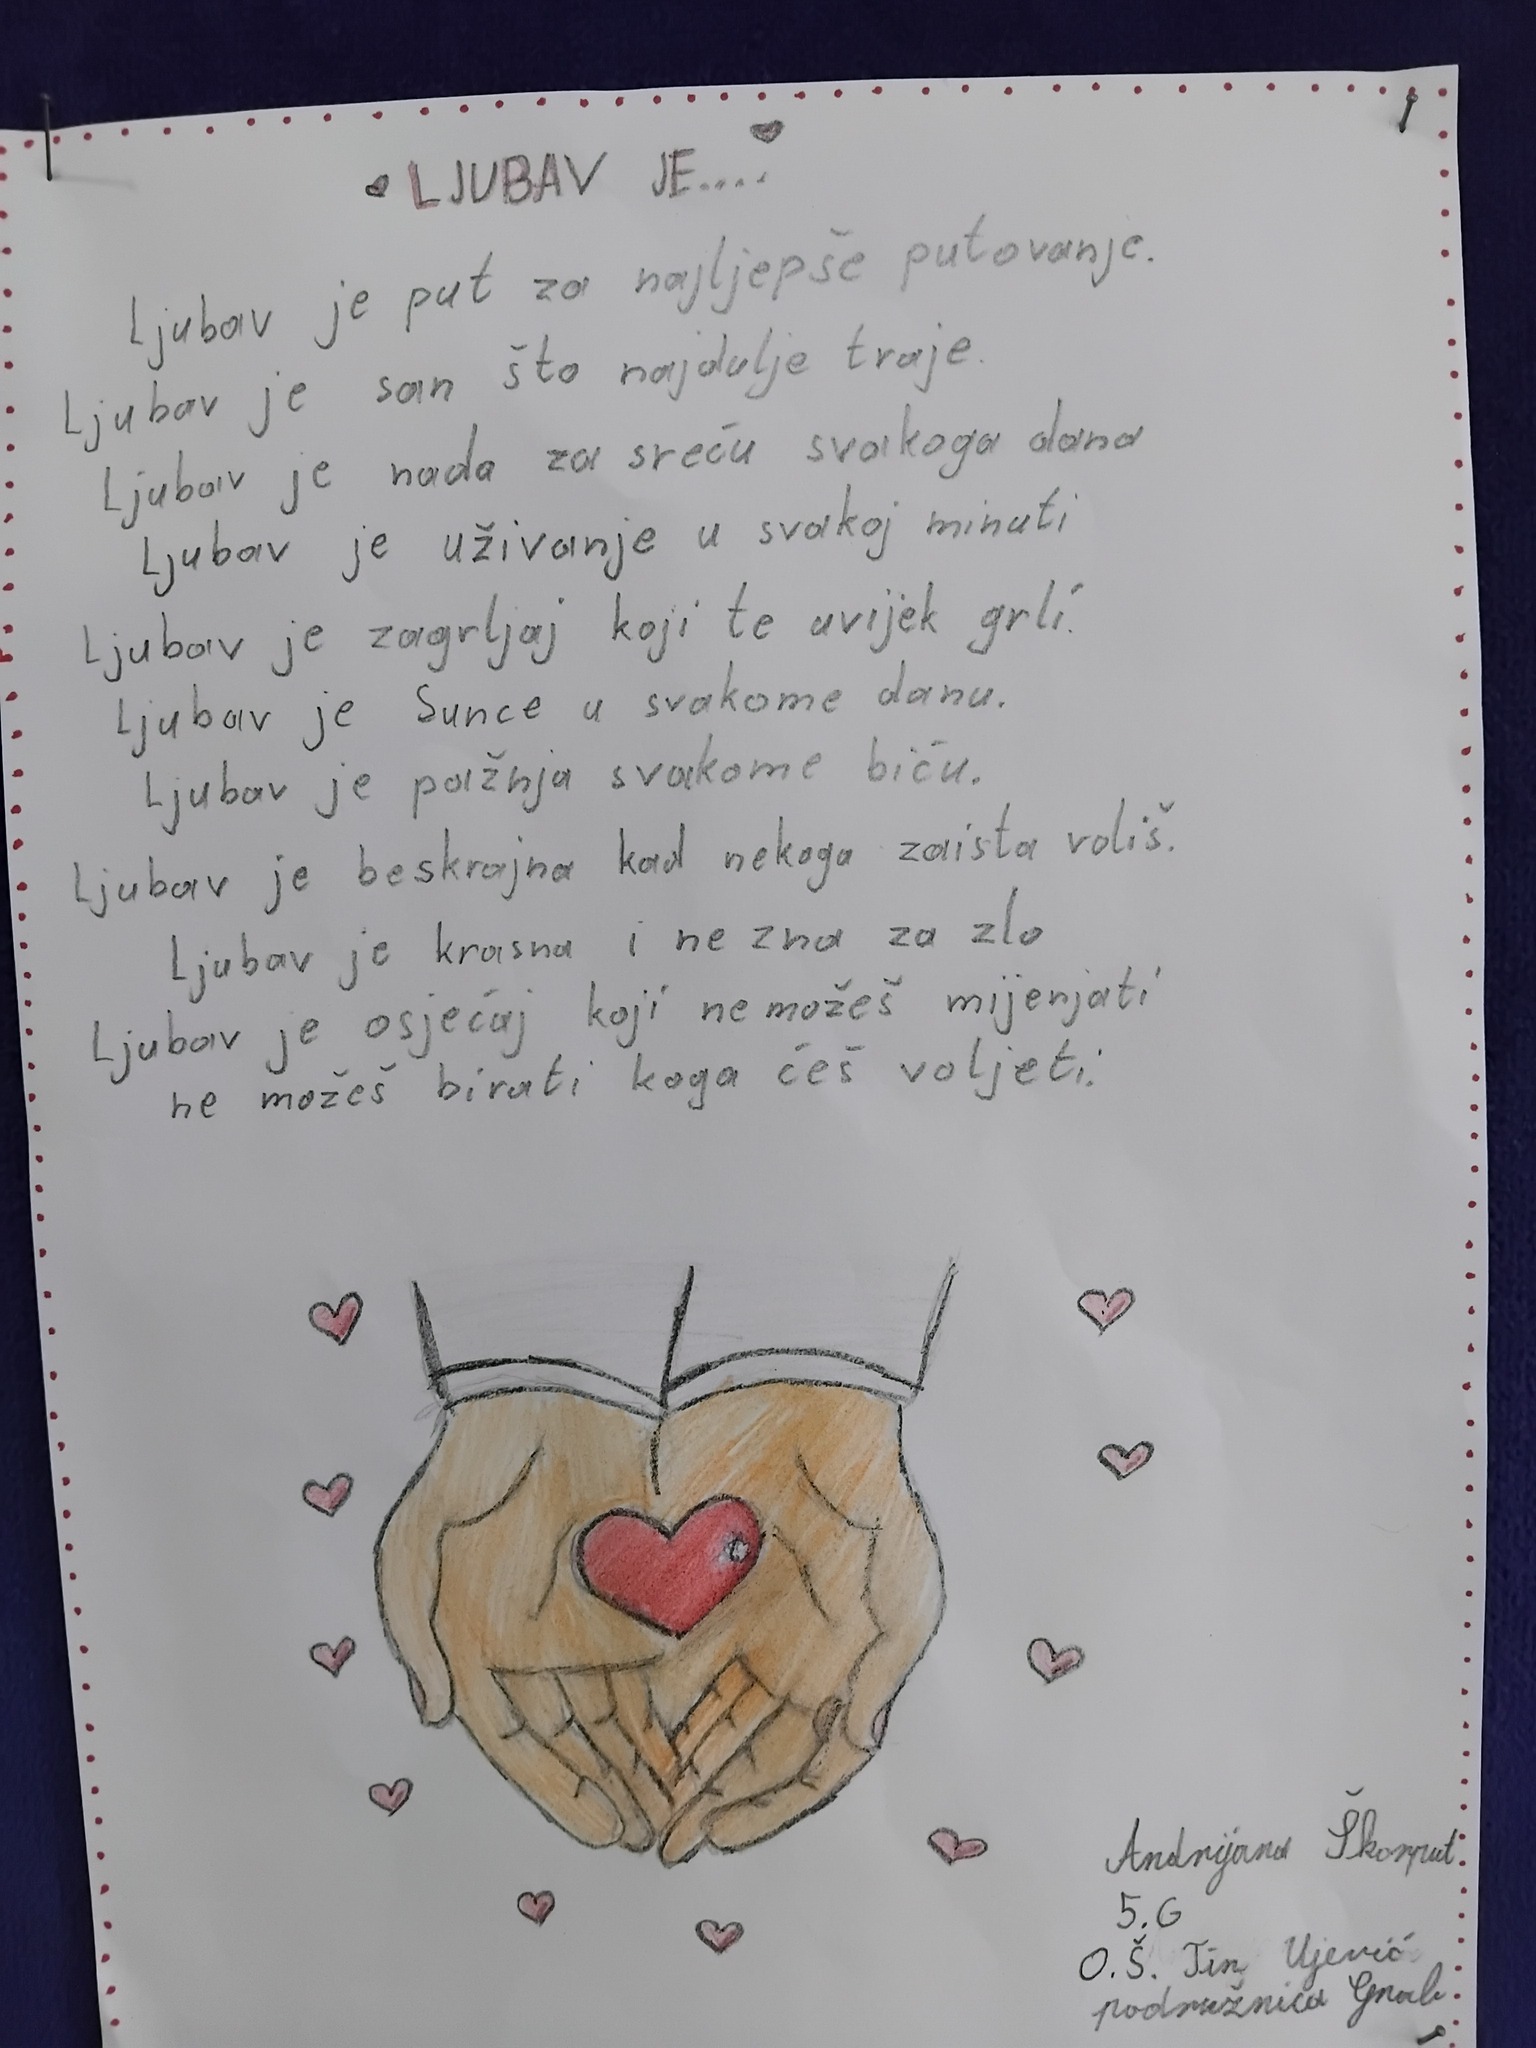 LJUBAV JE....
Ljubav je put za najljepše putovanje.
Ljubav je san što najdulje traje.
Ljubav je nada za sreću svakoga dana
Ljubav je uživanje u svakoj minuti
Ljubav je zagrljaj koji te uvijek grli.
Ljubav je Sunce u svakome danu.
Ljubav je pažnja svakome biću.
Ljubav je beskrajna kad nekoga zaista voliš.
Ljubav je krasna i ne zna za zlo
Ljubav je osjećaj koji ne možeš mijenjati
ne možeš birati koga ćeš voljeti.
Andrijana Škorput
5.G
O.Š. Tin Ujević
podružnica Grab